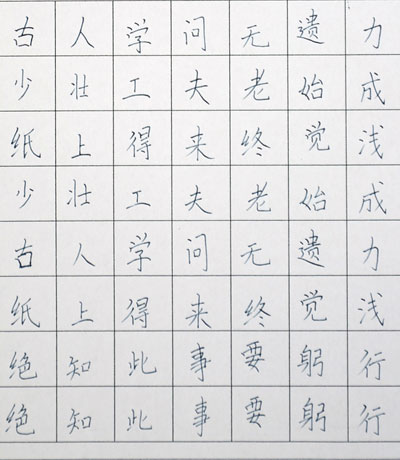 古人学问无遗力
少壮工夫老始成
纸上得来终觉浅
少壮工夫老始成
古人学问无遗力
纸上得来终觉浅
绝知此事要躬行
绝知此事要躬行